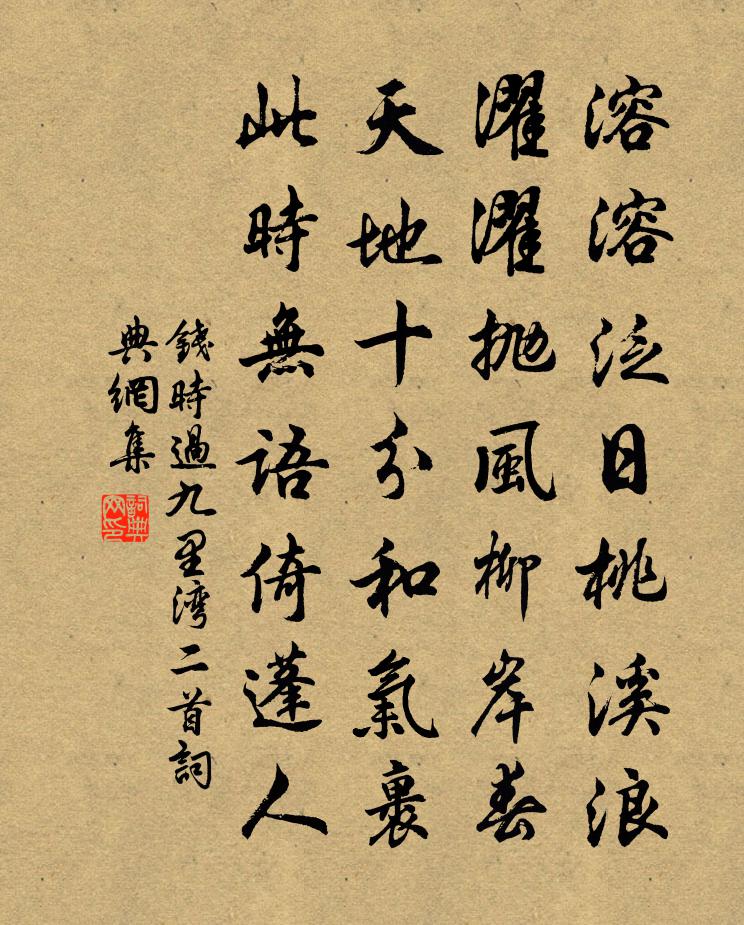 溶溶泛日桃溪浪
濯濯拋風柳岸春
天地十分和氣裹
此時無語倚蓬人
錢時過九里湾二首詞
典網集
詞典
网印